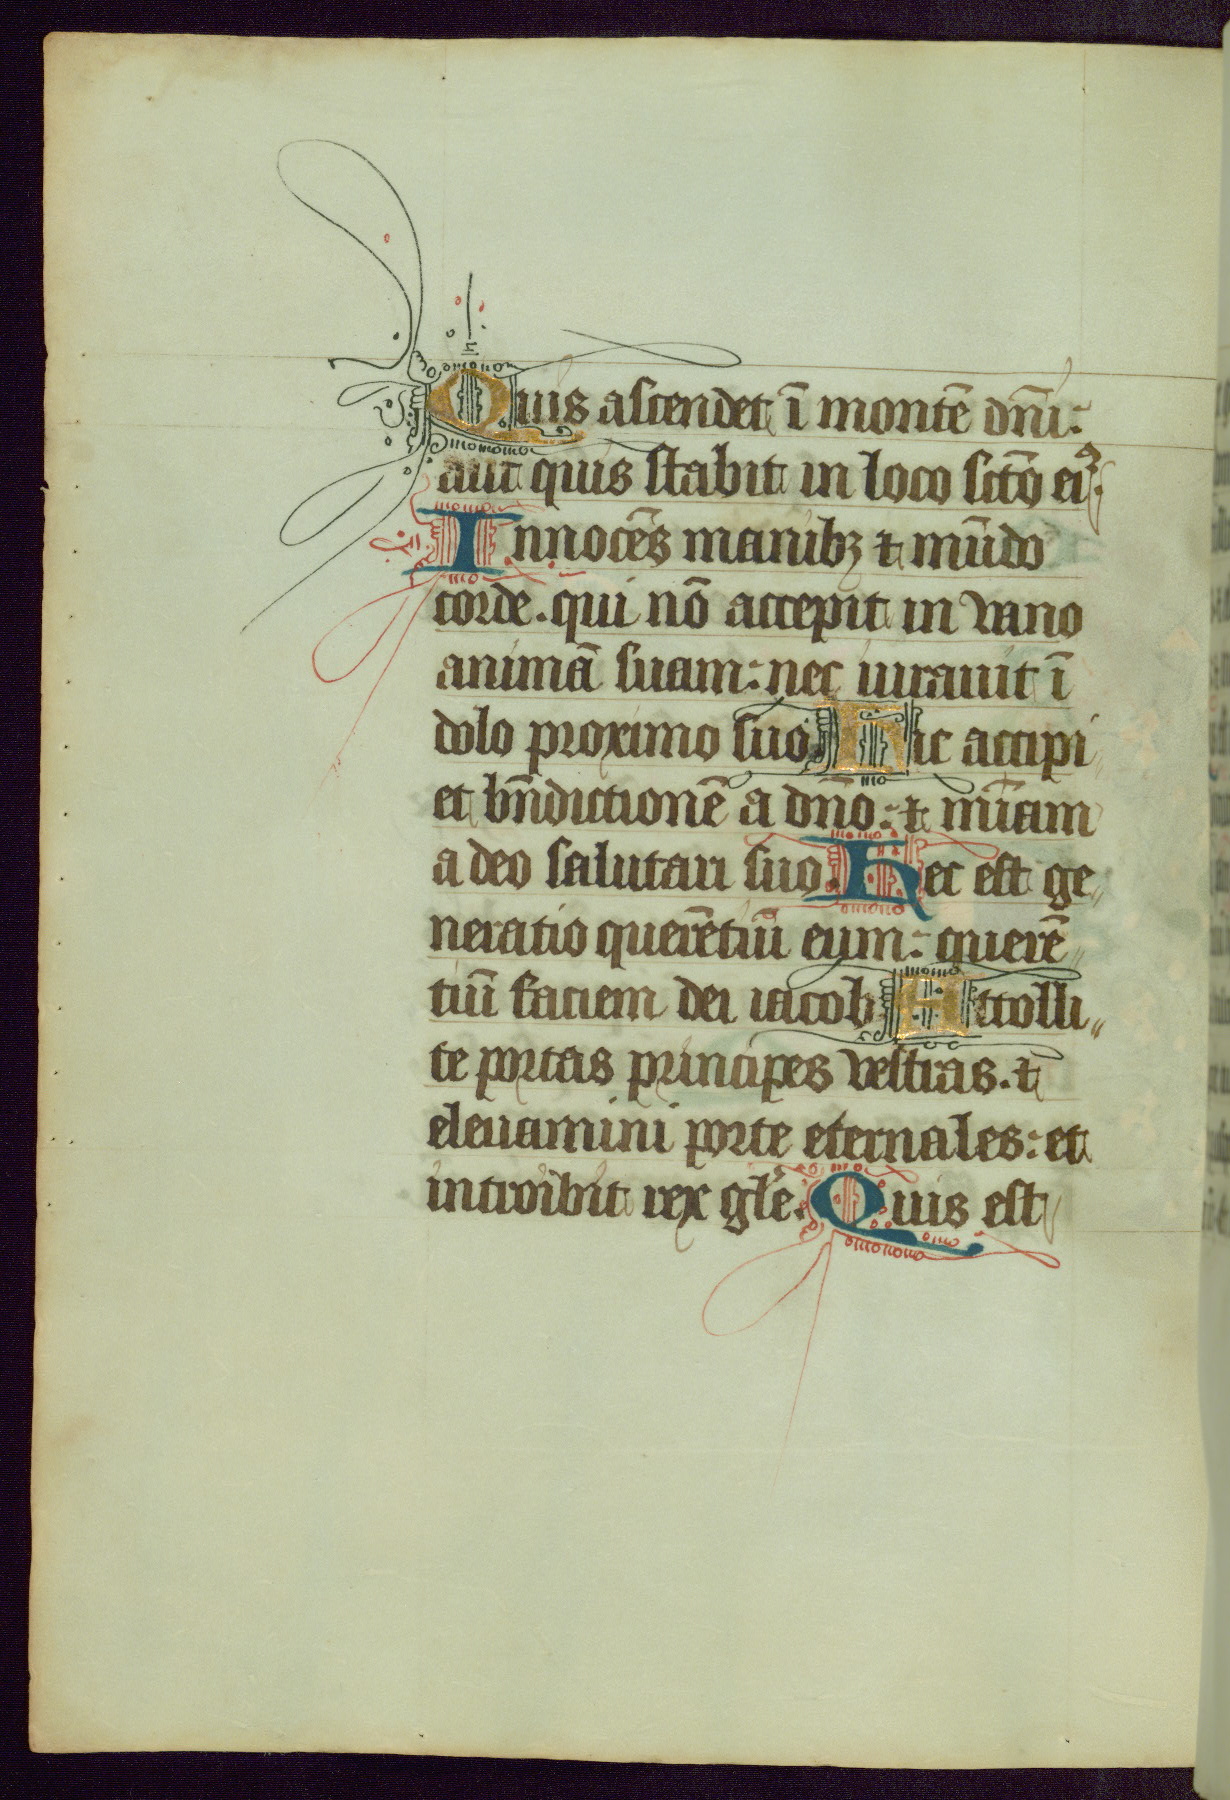 Quis ascendet ī montē dn̄i:
aut quis stabit in loco sc̄to eiꝰ.
Innocēs manibꝫ ⁊ mūdo
corde. qui nō accepit in vano
animā suam: nec iurauit ī
dolo proximo suo. Hic accipi
et bn̄dictionē a dn̄o: ⁊ mīam
a deo salutari suo. Hec est ge
neratio querētiū eum: querē
tiū faciem dei iacob Attolli
te portas principes vestras. ⁊
eleuamini porte eternales: et
introibit rex gl̄e. Quis est